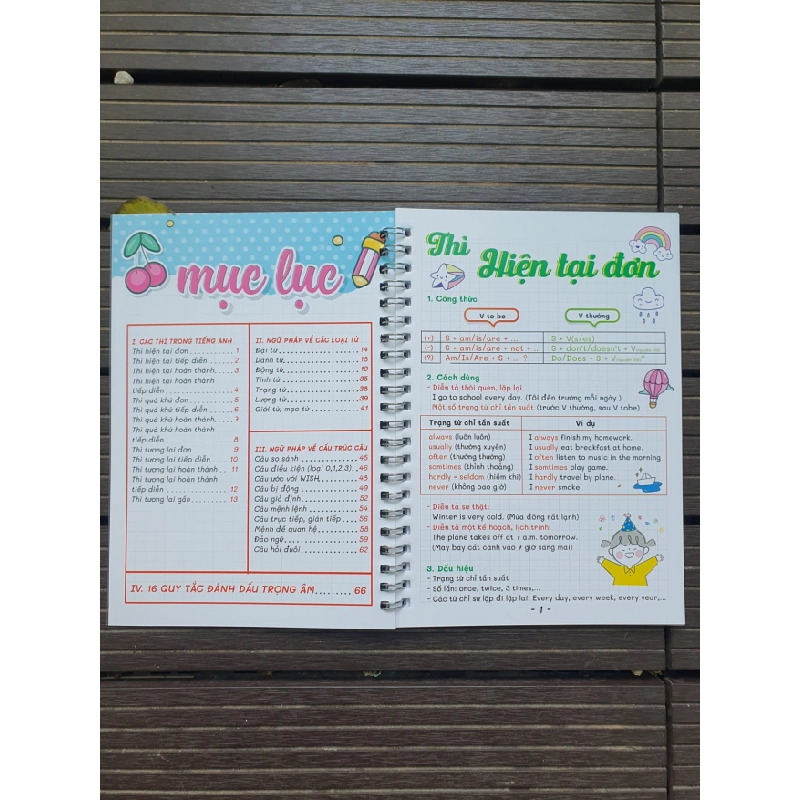 mục lục
I. CÁC THÌ TRONG TIẾNG ANH
Thì hiện tại đơn 1
Thì hiện tại tiếp diễn 2
Thì hiện tại hoàn thành 3
Thì hiện tại hoàn thành
tiếp diễn 4
Thì quá khứ đơn 5
Thì quá khứ tiếp diễn 6
Thì quá khứ hoàn thành 7
Thì quá khứ hoàn thành
tiếp diễn 8
Thì tương lai đơn 9
Thì tương lai tiếp diễn 10
Thì tương lai hoàn thành 11
Thì tương lai hoàn thành
tiếp diễn 12
Thì tương lai gần 13
II. NGỮ PHÁP VỀ CÁC LOẠI TỪ
Đại từ 14
Danh từ 15
Động từ
Tính từ
Trạng từ
Lượng từ 39
Giới từ, mạo từ 41
III. NGỮ PHÁP VỀ CẤU TRÚC CÂU
Câu so sánh 45
Câu điều kiện (loại 0,1,2,3) 46
Câu ước với WISH 48
Câu bị động 49
Câu giả định 52
Câu mệnh lệnh 54
Câu trực tiếp, gián tiếp 56
Mệnh đề quan hệ 58
Đảo ngữ 59
Câu hỏi đuôi 62
IV. 16 QUY TẮC ĐÁNH DẤU TRỌNG ÂM 66
Thì Hiện tại đơn
1. Công thức
V to be V thường
(+) S + am/is/are + ... S + V(s/es)
(-) S + am/is/are + not + ... S + don't/doesn't + V
(?) Am/Is/Are + S + ... ? Do/Does + S + V
2. Cách dùng
- Diễn tả thói quen, lặp lại
I go to school every day. (Tôi đến trường mỗi ngày)
Một số trạng từ chỉ tần suất (trước V thường, sau V tobe)
Trạng từ chỉ tần suất Ví dụ
always (luôn luôn) I always finish my homework.
usually (thường xuyên) I usually eat breakfast at home.
often (thường thường) I often listen to music in the morning
sometimes (thỉnh thoảng) I sometimes play game.
hardly = seldom (hiếm chi) I hardly travel by plane.
never (không bao giờ) I never smoke.
- Diễn tả sự thật:
Winter is very cold. (Mùa đông rất lạnh)
- Diễn tả một kế hoạch, lịch trình:
The plane takes off at 1 a.m. tomorrow.
(Máy bay cất cánh vào 1 giờ sáng mai)
3. Dấu hiệu
- Trạng từ chỉ tần suất
- Số lần: once, twice, 3 times,...
- Các từ chỉ sự lặp đi lặp lại: Every day, every week, every year,...
- 1 -